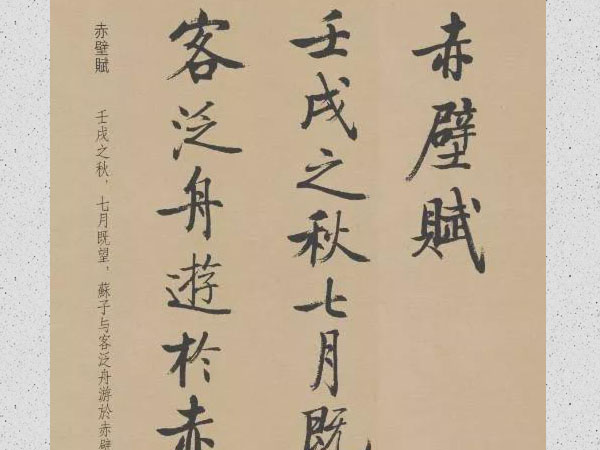 赤壁賦
壬戌之秋七月既
客泛舟遊於赤
赤壁賦　壬戌之秋，七月既望，蘇子与客泛舟游於赤壁